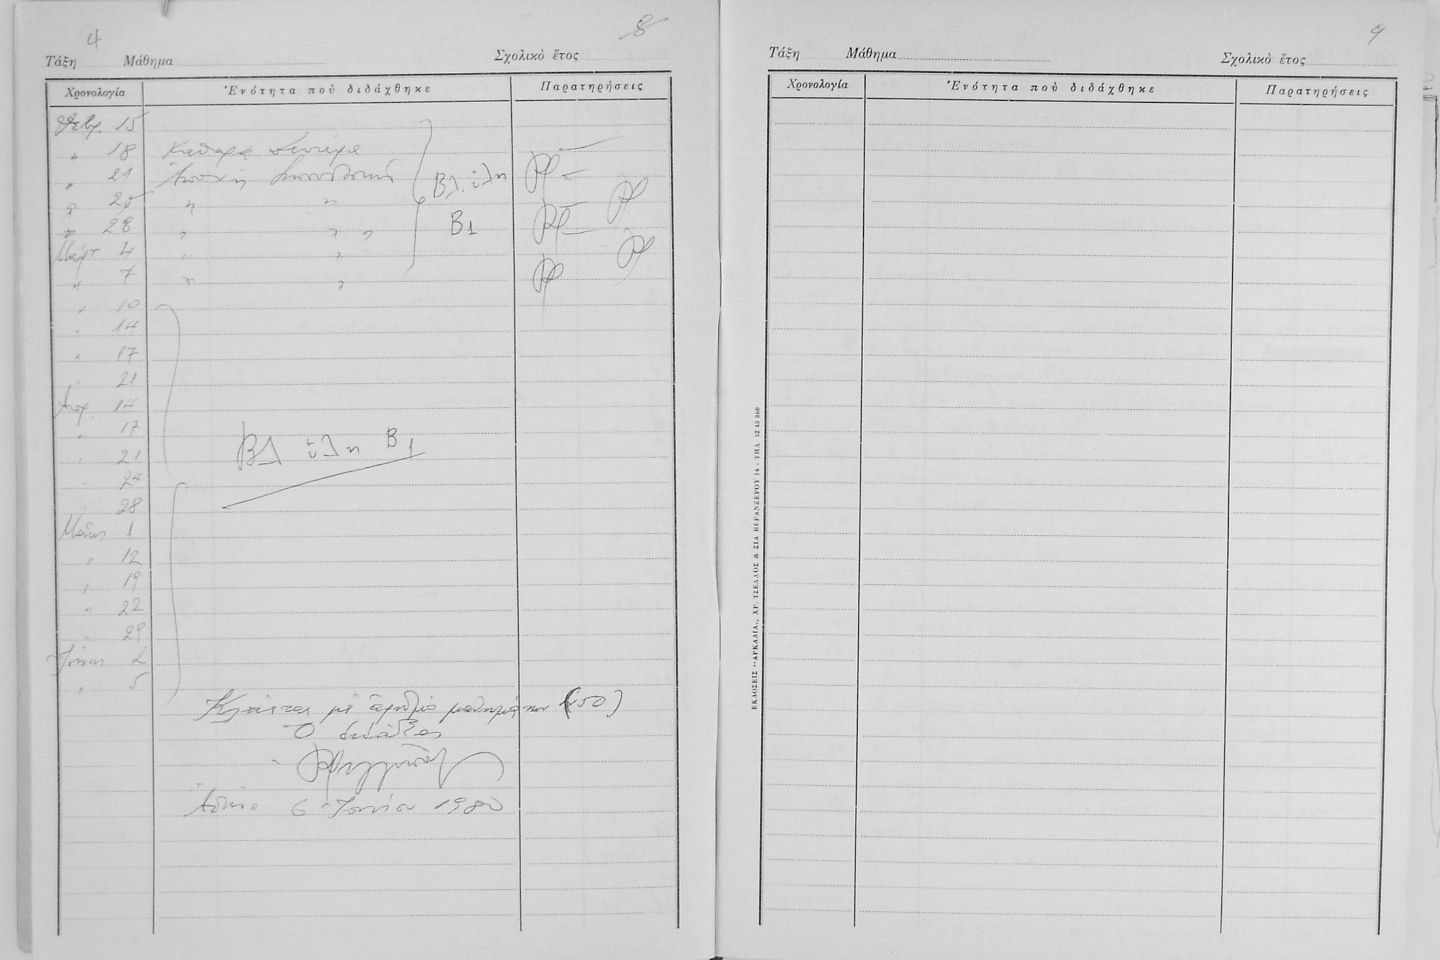 4
8
Τάξη Μάθημα Σχολικὸ ἔτος
Χρονολογία Ἑνότητα ποὺ διδάχθηκε Παρατηρήσεις
Φεβρ. 15
" 18
" 21 Βλ. ὕλη
" 25 " "
" 28 " " " Β1
Μαρτ 4 " "
" 7 " "
" 10
" 14
" 17
21
Απρ. 14
" 17
" 21 ΒΛ ὕλη Β1
" 24
28
Μαΐου 1
" 12
" 19
" 22
" 29
Ἰουν 2
" 5
Κλείεται μὲ ἀριθμὸ μαθημάτων (50)
Ὁ
Ἀθήνα 6 Ἰουνίου 1980
9
Τάξη Μάθημα Σχολικὸ ἔτος
Χρονολογία Ἑνότητα ποὺ διδάχθηκε Παρατηρήσεις
ΕΚΔΟΣΕΙΣ "ΑΡΚΑΔΙΑ", ΧΡ. ΤΣΕΛΛΟΣ & ΣΙΑ ΒΕΡΑΝΖΕΡΟΥ 14 - ΤΗΛ. 52 45 060